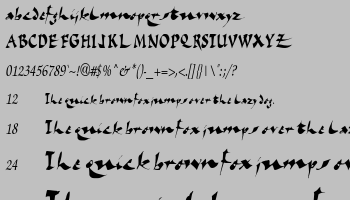 abcdefghijklmnopqrstuvwxyz
ABCDEFGHIJKLMNOPQRSTUVWXYZ
0123456789`~!@#$%^&*()-_+=>,<.[]{}|\":;/?
12 The quick brown fox jumps over the lazy dog.
18 The quick brown fox jumps over the laz
24 The quick brown fox jumps o